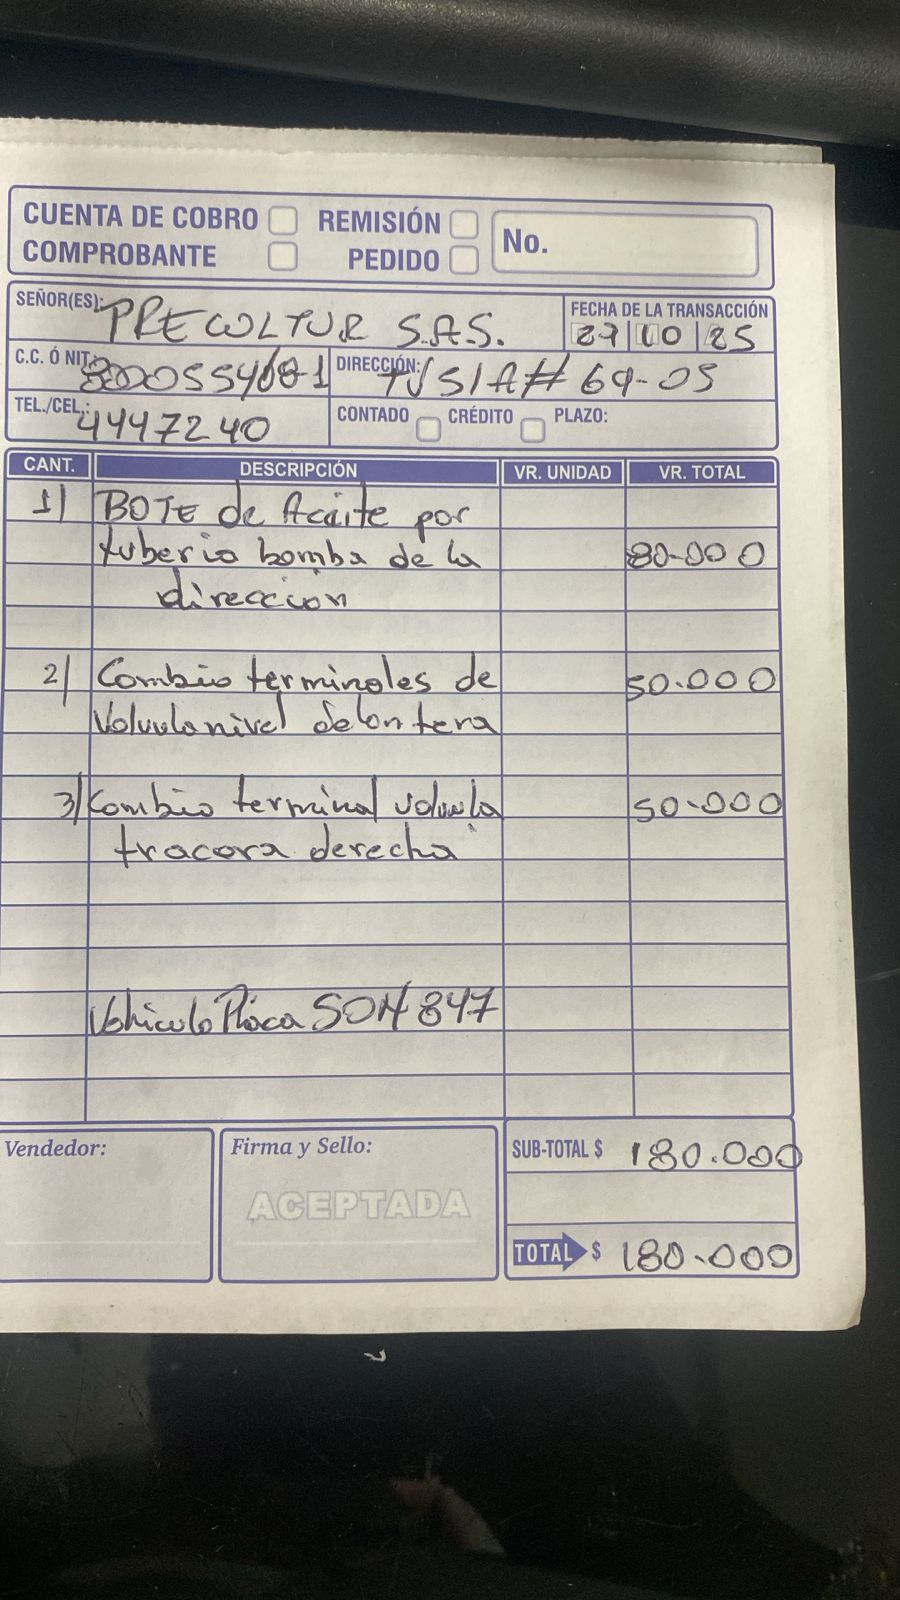 CUENTA DE COBRO REMISIÓN No.
COMPROBANTE PEDIDO
SEÑOR(ES): PRECOLTUR S.A.S.
FECHA DE LA TRANSACCIÓN
27 10 25
C.C. Ó NIT.: DIRECCIÓN: TV 51A # 69-05
TEL./CEL.: 4447240 CONTADO CRÉDITO PLAZO:
CANT. DESCRIPCIÓN VR. UNIDAD VR. TOTAL
1) BOTE de Aceite por
tuberia bomba de la 80.000
direccion
2) Cambio terminales de 50.000
Valvula nivel delantera
3) Cambio terminal valvula 50.000
tracera derecha
Vehiculo Placa SON 847
Vendedor: Firma y Sello: SUB-TOTAL $ 180.000
ACEPTADA
TOTAL $ 180.000